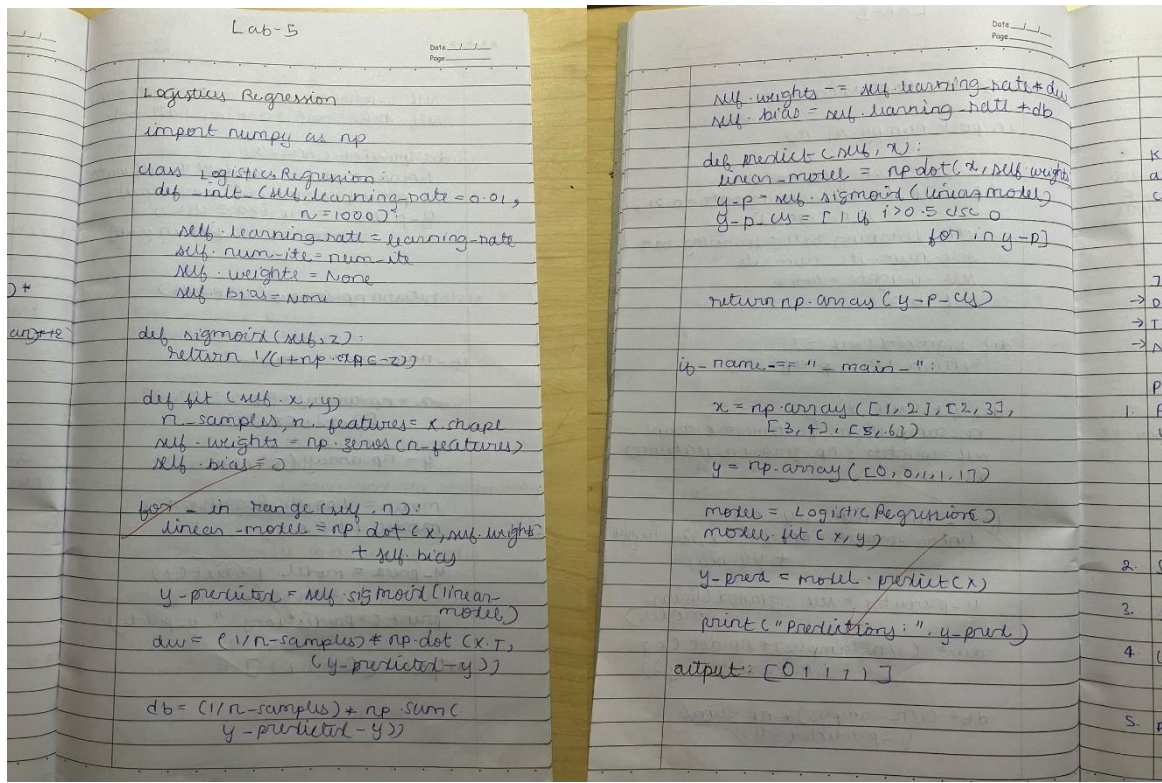 Lab-5
Date
Page
Logistics Regression
import numpy as np
class LogisticsRegression:
def _init_ (self, learning-rate = 0.01,
n = 1000):
self.learning-rate = learning-rate
self.num-ite = num-ite
self.weights = None
self.bias = None
def sigmoid (self, z):
return 1/(1+np.exp(-z))
def fit (self. x, y)
n_samples, n_features = x.shape
self.weights = np.zeros(n-features)
self.bias = 0
for _ in range (self.n):
linear-model = np.dot (x, self.weights
+ self.bias
y-predicted = self.sigmoid (linear-
model)
dw = (1/n-samples) * np.dot (X.T,
(y-predicted - y))
db = (1/n-samples) * np.sum(
y-predicted - y))
Date
Page
self.weights -= self.learning_rate * dw
self.bias = self.learning_rate * db
def predict (self, x):
linear-model = np.dot(x, self.weights
y-p = self.sigmoid (linear model)
y-p-cls = [1 if i>0.5 else 0
for i in y-p]
return np.array (y-p-cls)
if _name_ == "_main_":
x = np.array ([1, 2], [2, 3],
[3, 4], [5, 6])
y = np.array ([0, 0, 1, 1, 1])
model = LogisticRegression()
model.fit (x, y)
y-pred = model.predict (x)
print ("Predictions: ", y-pred)
output: [0 1 1 1 1]
1.
2.
3.
4.
5.